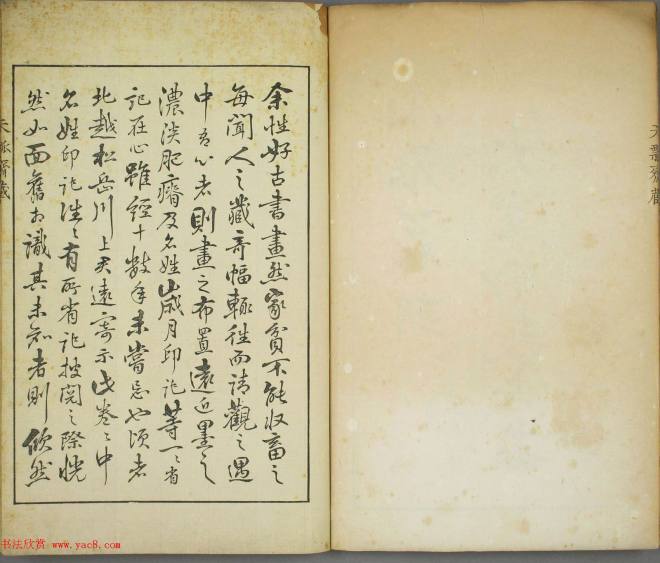 余性好古書畫然家貧不能収畜之
每聞人之藏奇幅輒往而請觀之遇
中吾心者則畫之布置遠近墨之
濃淡肥瘠及名姓歲月印記等一〻省
記在心雖經十數年未嘗忘也頃者
北越松岳川上君遠寄示此卷〻中
名姓印記往〻有所省記披閱之際恍
然如面舊相識其未知者則倐然
天 齋藏
天 齋藏
书法欣赏 www.yac8.com